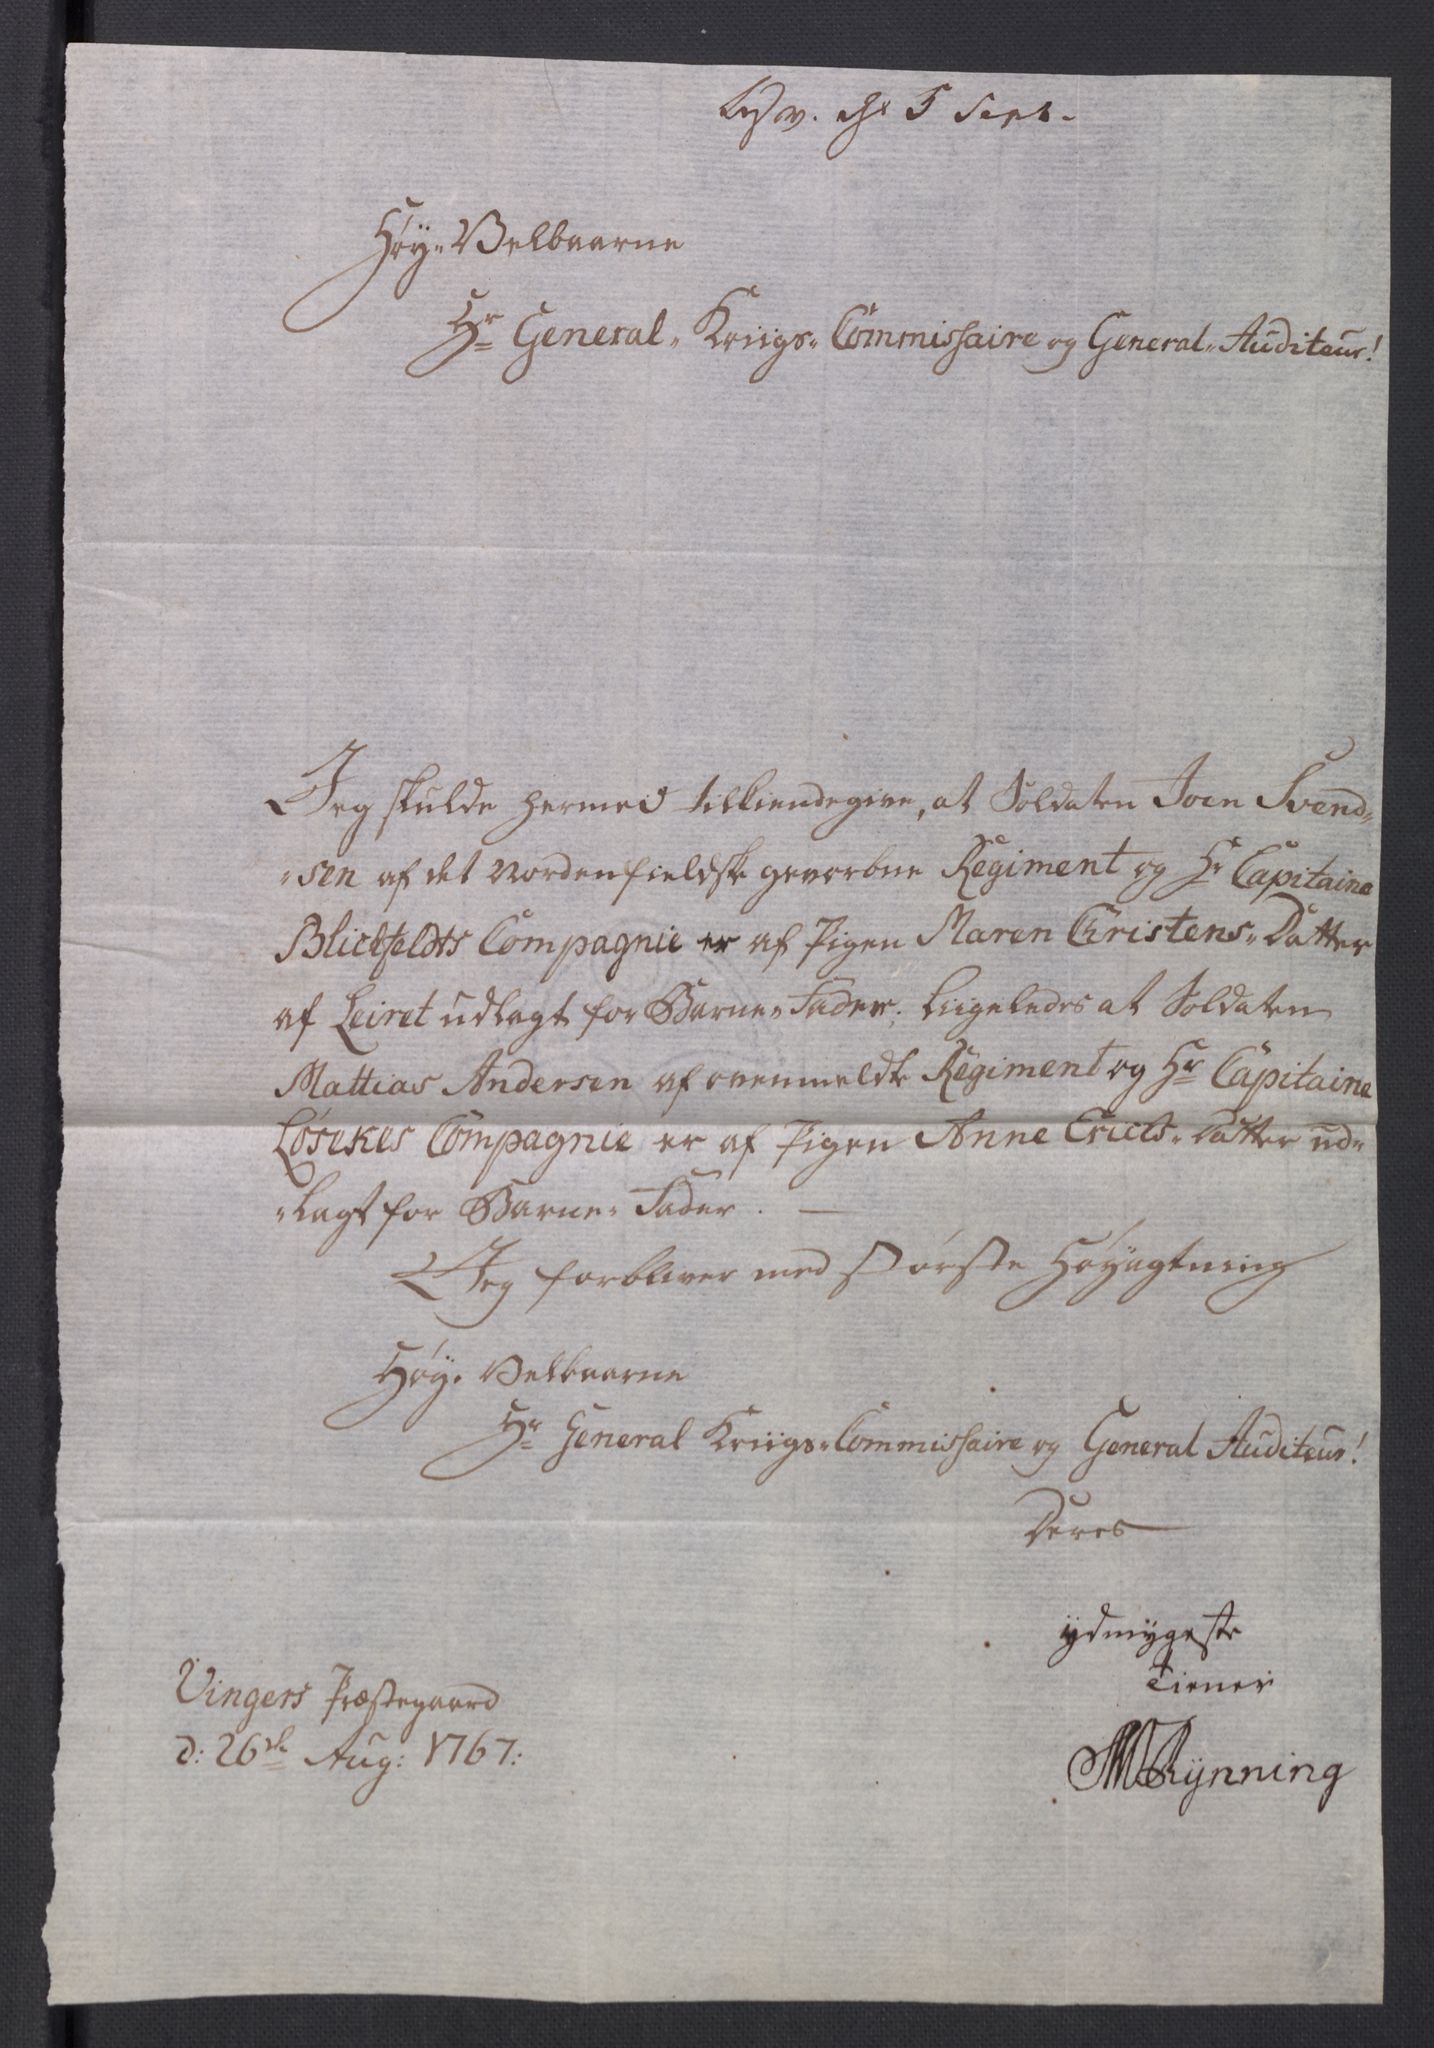 d 5 Sept.
Høy-Velbaarne
Hr General-Kriigs-Commissaire og General-Auditeur!
Jeg skulde hermed tilkiendegive, at Soldaten Joen Svend-
-sen af det Nordenfieldske gevorbne Regiment og Hr Capitaine
Blickfeldts Compagnie er af Pigen Maren Christens-Datter
af Leiret udlagt for Barne-Fader; liigeledes at Soldaten
Mattias Andersen af ovenmeldte Regiment og Hr Capitaine
Lösekes Compagnie er af Pigen Anne Erichs-Datter ud-
-lagt for Barne-Fader. —
Jeg forbliver med største Høyagtning
Høy-Velbaarne
Hr General Kriigs-Commissaire og General Auditeur!
Deres
ydmygeste
Tiener
Rynning
Vingers Præstegaard
d: 26de Aug: 1767: